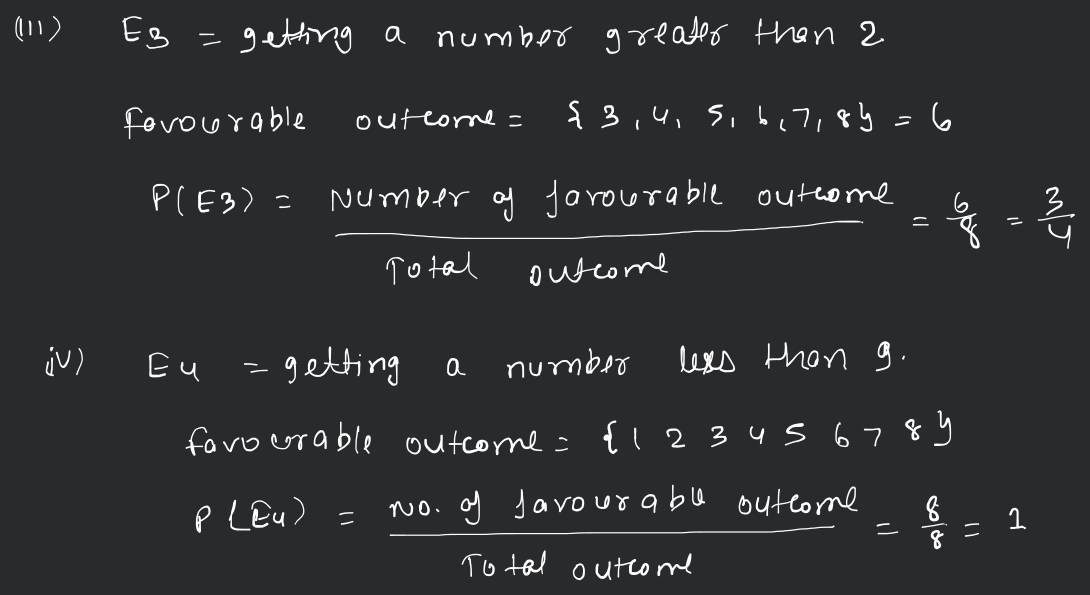 (iii) E3 = getting a number greater than 2
favourable outcome = { 3, 4, 5, 6, 7, 8 } = 6
P(E3) = Number of favourable outcome / Total outcome = 6/8 = 3/4
iv) E4 = getting a number less than 9.
favourable outcome = { 1 2 3 4 5 6 7 8 }
P(E4) = No. of favourable outcome / Total outcome = 8/8 = 1